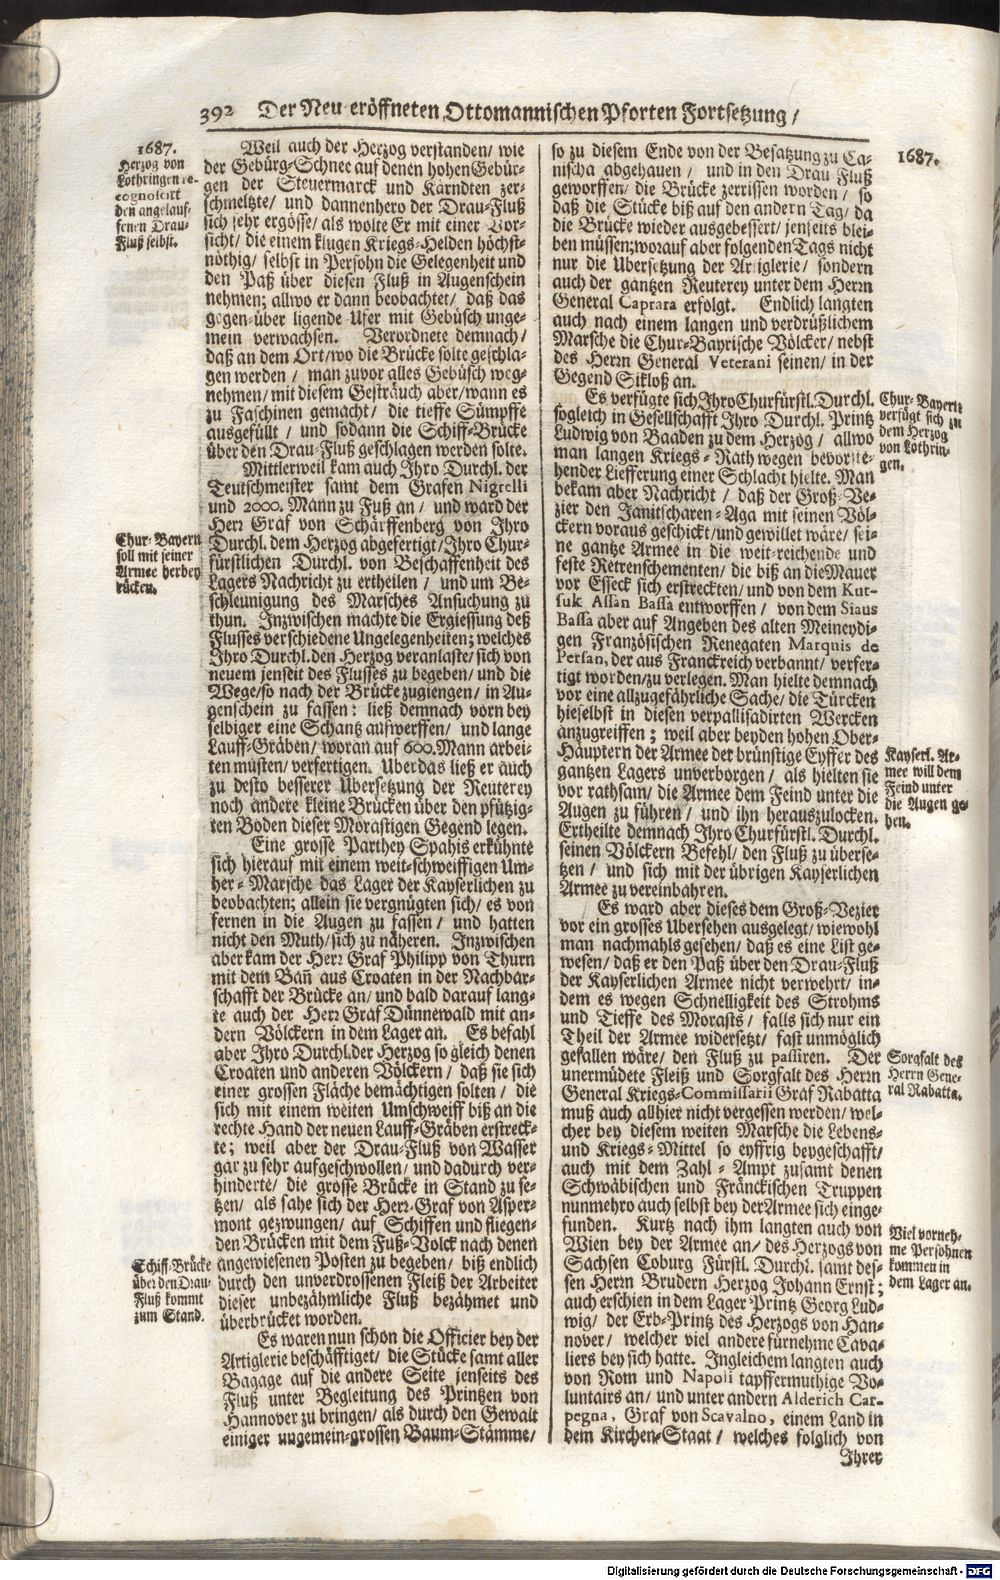 392 Der Neu-eröffneten Ottomannischen Pforten Fortsetzung /
1687.
Herzog von
Lothringen re-
cognoscirt
den angelauf-
fenen Drau-
Fluß selbst.
Weil auch der Herzog verstanden / wie
der Gebürg-Schnee auf denen hohen Gebür-
gen der Steuermarck und Kärndten zer-
schmeltzte / und dannenhero der Drau-Fluß
sich sehr ergösse / als wolte Er mit einer Vor-
sicht / die einem klugen Kriegs-Helden höchst-
nöthig / selbst in Persohn die Gelegenheit und
den Paß über diesen Fluß in Augenschein
nehmen; allwo er dann beobachtet / daß das
gegen-über ligende Ufer mit Gebüsch unge-
mein verwachsen. Verordnete demnach /
daß an dem Ort / wo die Brücke solte geschla-
gen werden / man zuvor alles Gebüsch weg-
nehmen / mit diesem Gesträuch aber / wann es
zu Faschinen gemacht / die tieffe Sümpffe
ausgefüllt / und sodann die Schiff-Brücke
über den Drau-Fluß geschlagen werden solte.
Mittlerweil kam auch Ihro Durchl. der
Teutschmeister samt dem Grafen Nigrelli
und 2000. Mann zu Fuß an / und ward der
Herr Graf von Schärffenberg von Ihro
Durchl. dem Herzog abgefertigt / Ihro Chur-
fürstlichen Durchl. von Beschaffenheit des
Lagers Nachricht zu ertheilen / und um Be-
schleunigung des Marsches Ansuchung zu
thun. Inzwischen machte die Ergiessung deß
Flusses verschiedene Ungelegenheiten; welches
Ihro Durchl. den Herzog veranlaste / sich von
neuem jenseit des Flusses zu begeben / und die
Wege / so nach der Brücke zugiengen / in Au-
genschein zu fassen: ließ demnach vorn bey
selbiger eine Schantz aufwerffen / und lange
Lauff-Gräben / woran auf 600. Mann arbei-
ten müsten / verfertigen. Uber das ließ er auch
zu desto besserer Ubersetzung der Reuterey
noch andere kleine Brücken über den pfützig-
ten Boden dieser Morastigen Gegend legen.
Eine grosse Parthey Spahis erkühnte
sich hierauf mit einem weit-schweiffigen Um-
her-Marsche das Lager der Kayserlichen zu
beobachten; allein sie vergnügten sich / es von
fernen in die Augen zu fassen / und hatten
nicht den Muth / sich zu näheren. Inzwischen
aber kam der Herr Graf Philipp von Thurn
mit dem Bañ aus Croaten in der Nachbar-
schafft der Brücke an / und bald darauf lang-
te auch der Herr Graf Dünnewald mit an-
dern Völckern in dem Lager an. Es befahl
aber Ihro Durchl. der Herzog so gleich denen
Croaten und anderen Völckern / daß sie sich
einer grossen Fläche bemächtigen solten / die
sich mit einem weiten Umschweiff biß an die
rechte Hand der neuen Lauff-Gräben erstreck-
te; weil aber der Drau-Fluß von Wasser
gar zu sehr aufgeschwollen / und dadurch ver-
hinderte / die grosse Brücke in Stand zu se-
tzen / als sahe sich der Herr Graf von Asper-
mont gezwungen / auf Schiffen und fliegen-
den Brücken mit dem Fuß-Volck nach denen
angewiesenen Posten zu begeben / biß endlich
durch den unverdrossenen Fleiß der Arbeiter
dieser unbezähmliche Fluß bezähmet und
überbrücket worden.
Es waren nun schon die Officier bey der
Artiglerie beschäfftiget / die Stücke samt aller
Bagage auf die andere Seite jenseits des
Fluß unter Begleitung des Printzen von
Hannover zu bringen / als durch den Gewalt
einiger ungemein-grossen Baum-Stämme /
Chur-Bayern
soll mit seiner
Armee herbey
rücken.
Schiff-Brücke
über den Drau-
Fluß kommt
zum Stand.
so zu diesem Ende von der Besatzung zu Ca-
nischa abgehauen / und in den Drau Fluß
geworffen / die Brücke zerrissen worden / so
daß die Stücke biß auf den andern Tag / da
die Brücke wieder ausgebessert / jenseits blei-
ben müssen; worauf aber folgenden Tags nicht
nur die Ubersetzung der Artiglerie / sondern
auch der gantzen Reuterey unter dem Herrn
General Caprara erfolgt. Endlich langten
auch nach einem langen und verdrüßlichem
Marsche die Chur-Bayrische Völcker / nebst
des Herrn General Veterani seinen / in der
Gegend Sikloß an.
Es verfügte sich Ihro Churfürstl. Durchl.
sogleich in Gesellschafft Ihro Durchl. Printz
Ludwig von Baaden zu dem Herzog / allwo
man langen Kriegs-Rath wegen bevorste-
hender Lieferung einer Schlacht hielte. Man
bekam aber Nachricht / daß der Groß-Ve-
zier den Janitscharen-Aga mit seinen Völ-
ckern voraus geschickt / und gewillet wäre / sei-
ne gantze Armee in die weit-reichende und
feste Retrenschementen / die biß an die Mauer
vor Esseck sich erstreckten / und von dem Kut-
suk Assan Bassa entworffen / von dem Siaus
Bassa aber auf Angeben des alten Meineydi-
gen Französischen Renegaten Marquis de
Persan, der aus Franckreich verbannt / verfer-
tigt worden / zu verlegen. Man hielte demnach
vor eine allzugefährliche Sache / die Türcken
hieselbst in diesen verpallisadirten Wercken
anzugreiffen; weil aber beyden hohen Ober-
Häuptern der Armee der brünstige Eyffer des
gantzen Lagers unverborgen / als hielten sie
vor rathsam / die Armee dem Feind unter die
Augen zu führen / und ihn herauszulocken.
Ertheilte demnach Ihro Churfürstl. Durchl.
seinen Völckern Befehl / den Fluß zu überse-
tzen / und sich mit der übrigen Kayserlichen
Armee zu vereinbahren.
Es ward aber dieses dem Groß-Vezier
vor ein grosses Ubersehen ausgelegt / wiewohl
man nachmahls gesehen / daß es eine List ge-
wesen / daß er den Paß über den Drau-Fluß
der Kayserlichen Armee nicht verwehrt / in-
dem es wegen Schnelligkeit des Strohms
und Tieffe des Morasts / falls sich nur ein
Theil der Armee widersetzt / fast unmöglich
gefallen wäre / den Fluß zu passiren. Der
unermüdete Fleiß und Sorgfalt des Herrn
General Kriegs-Commissarii Graf Rabatta
muß auch allhier nicht vergessen werden / wel-
cher bey diesem weiten Marsche die Lebens-
und Kriegs-Mittel so eyffrig beygeschafft /
auch mit dem Zahl-Ampt zusamt denen
Schwäbischen und Fränckischen Truppen
nunmehro auch selbst bey der Armee sich einge-
funden. Kurtz nach ihm langten auch von
Wien bey der Armee an / des Herzogs von
Sachsen Coburg Fürstl. Durchl. samt des-
sen Herrn Brudern Herzog Johann Ernst;
auch erschien in dem Lager Printz Georg Lud-
wig / der Erb-Printz des Herzogs von Han-
nover / welcher viel andere fürnehme Cava-
liers bey sich hatte. Ingleichem langten auch
von Rom und Napoli tapffermuthige Vo-
luntairs an / und unter andern Alderich Car-
pegna, Graf von Scavalno, einem Land in
dem Kirchen-Staat / welches folglich von
Ihrer
1687.
Chur-Bayern
verfügt sich zu
dem Herzog
von Lothrin-
gen.
Kayserl. Ar-
mee will dem
Feind unter
die Augen ge-
hen.
Sorgfalt des
Herrn Gene-
ral Rabatta.
Viel vorneh-
me Persohnen
kommen in
dem Lager an.
Digitalisierung gefördert durch die Deutsche Forschungsgemeinschaft - DFG